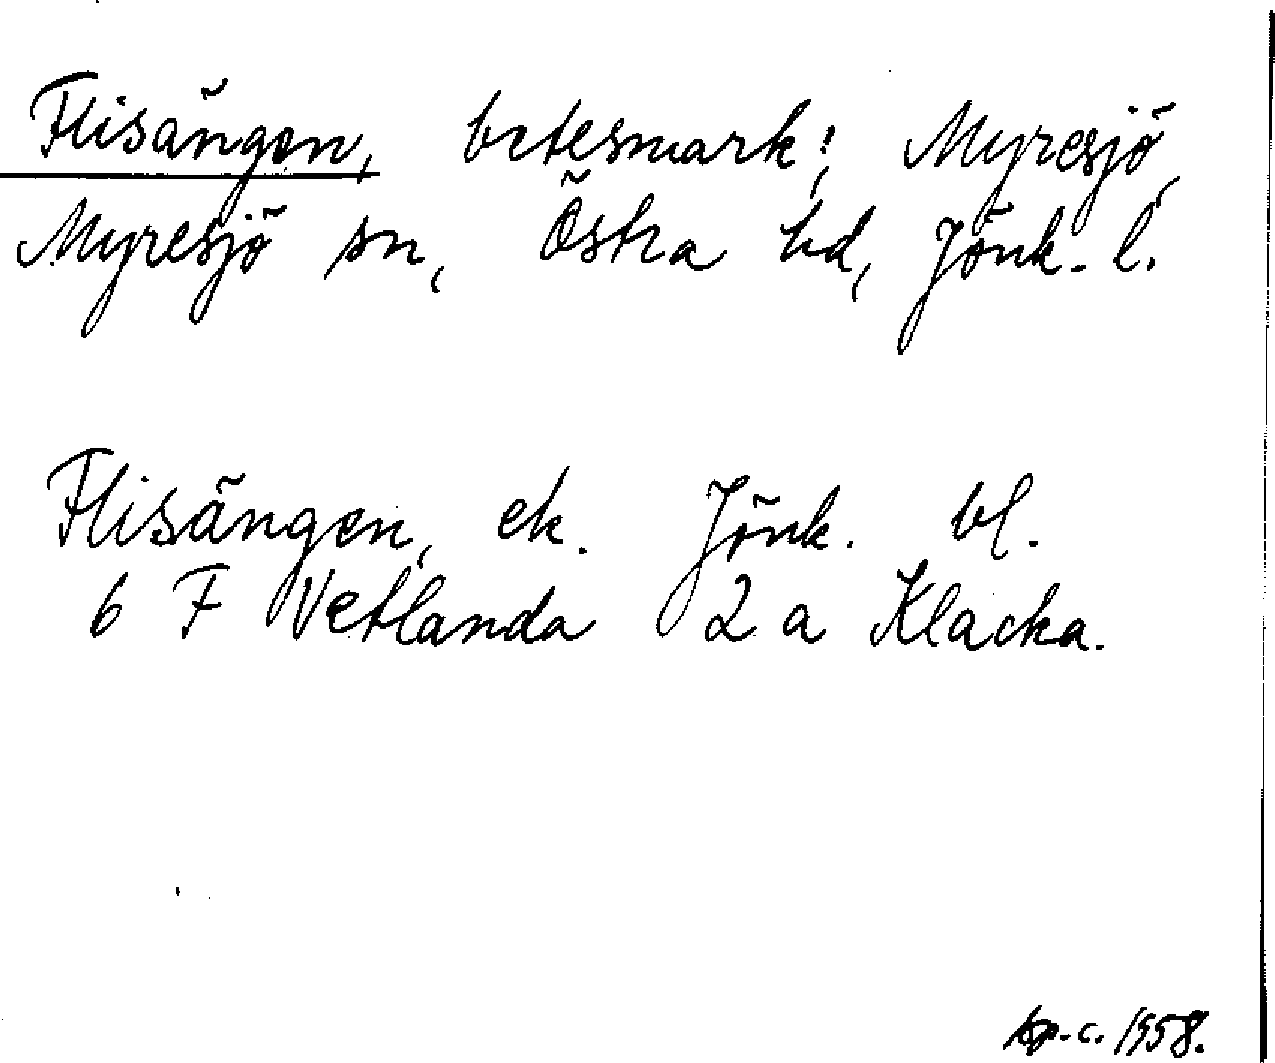 Flisängen, betesmark; Myresjö,
Myresjö sn, Östra hd, Jönk. l.
Flisängen, ek. Jönk. bl.
6 F Vetlanda 2 a Klacka.
c. 1958.